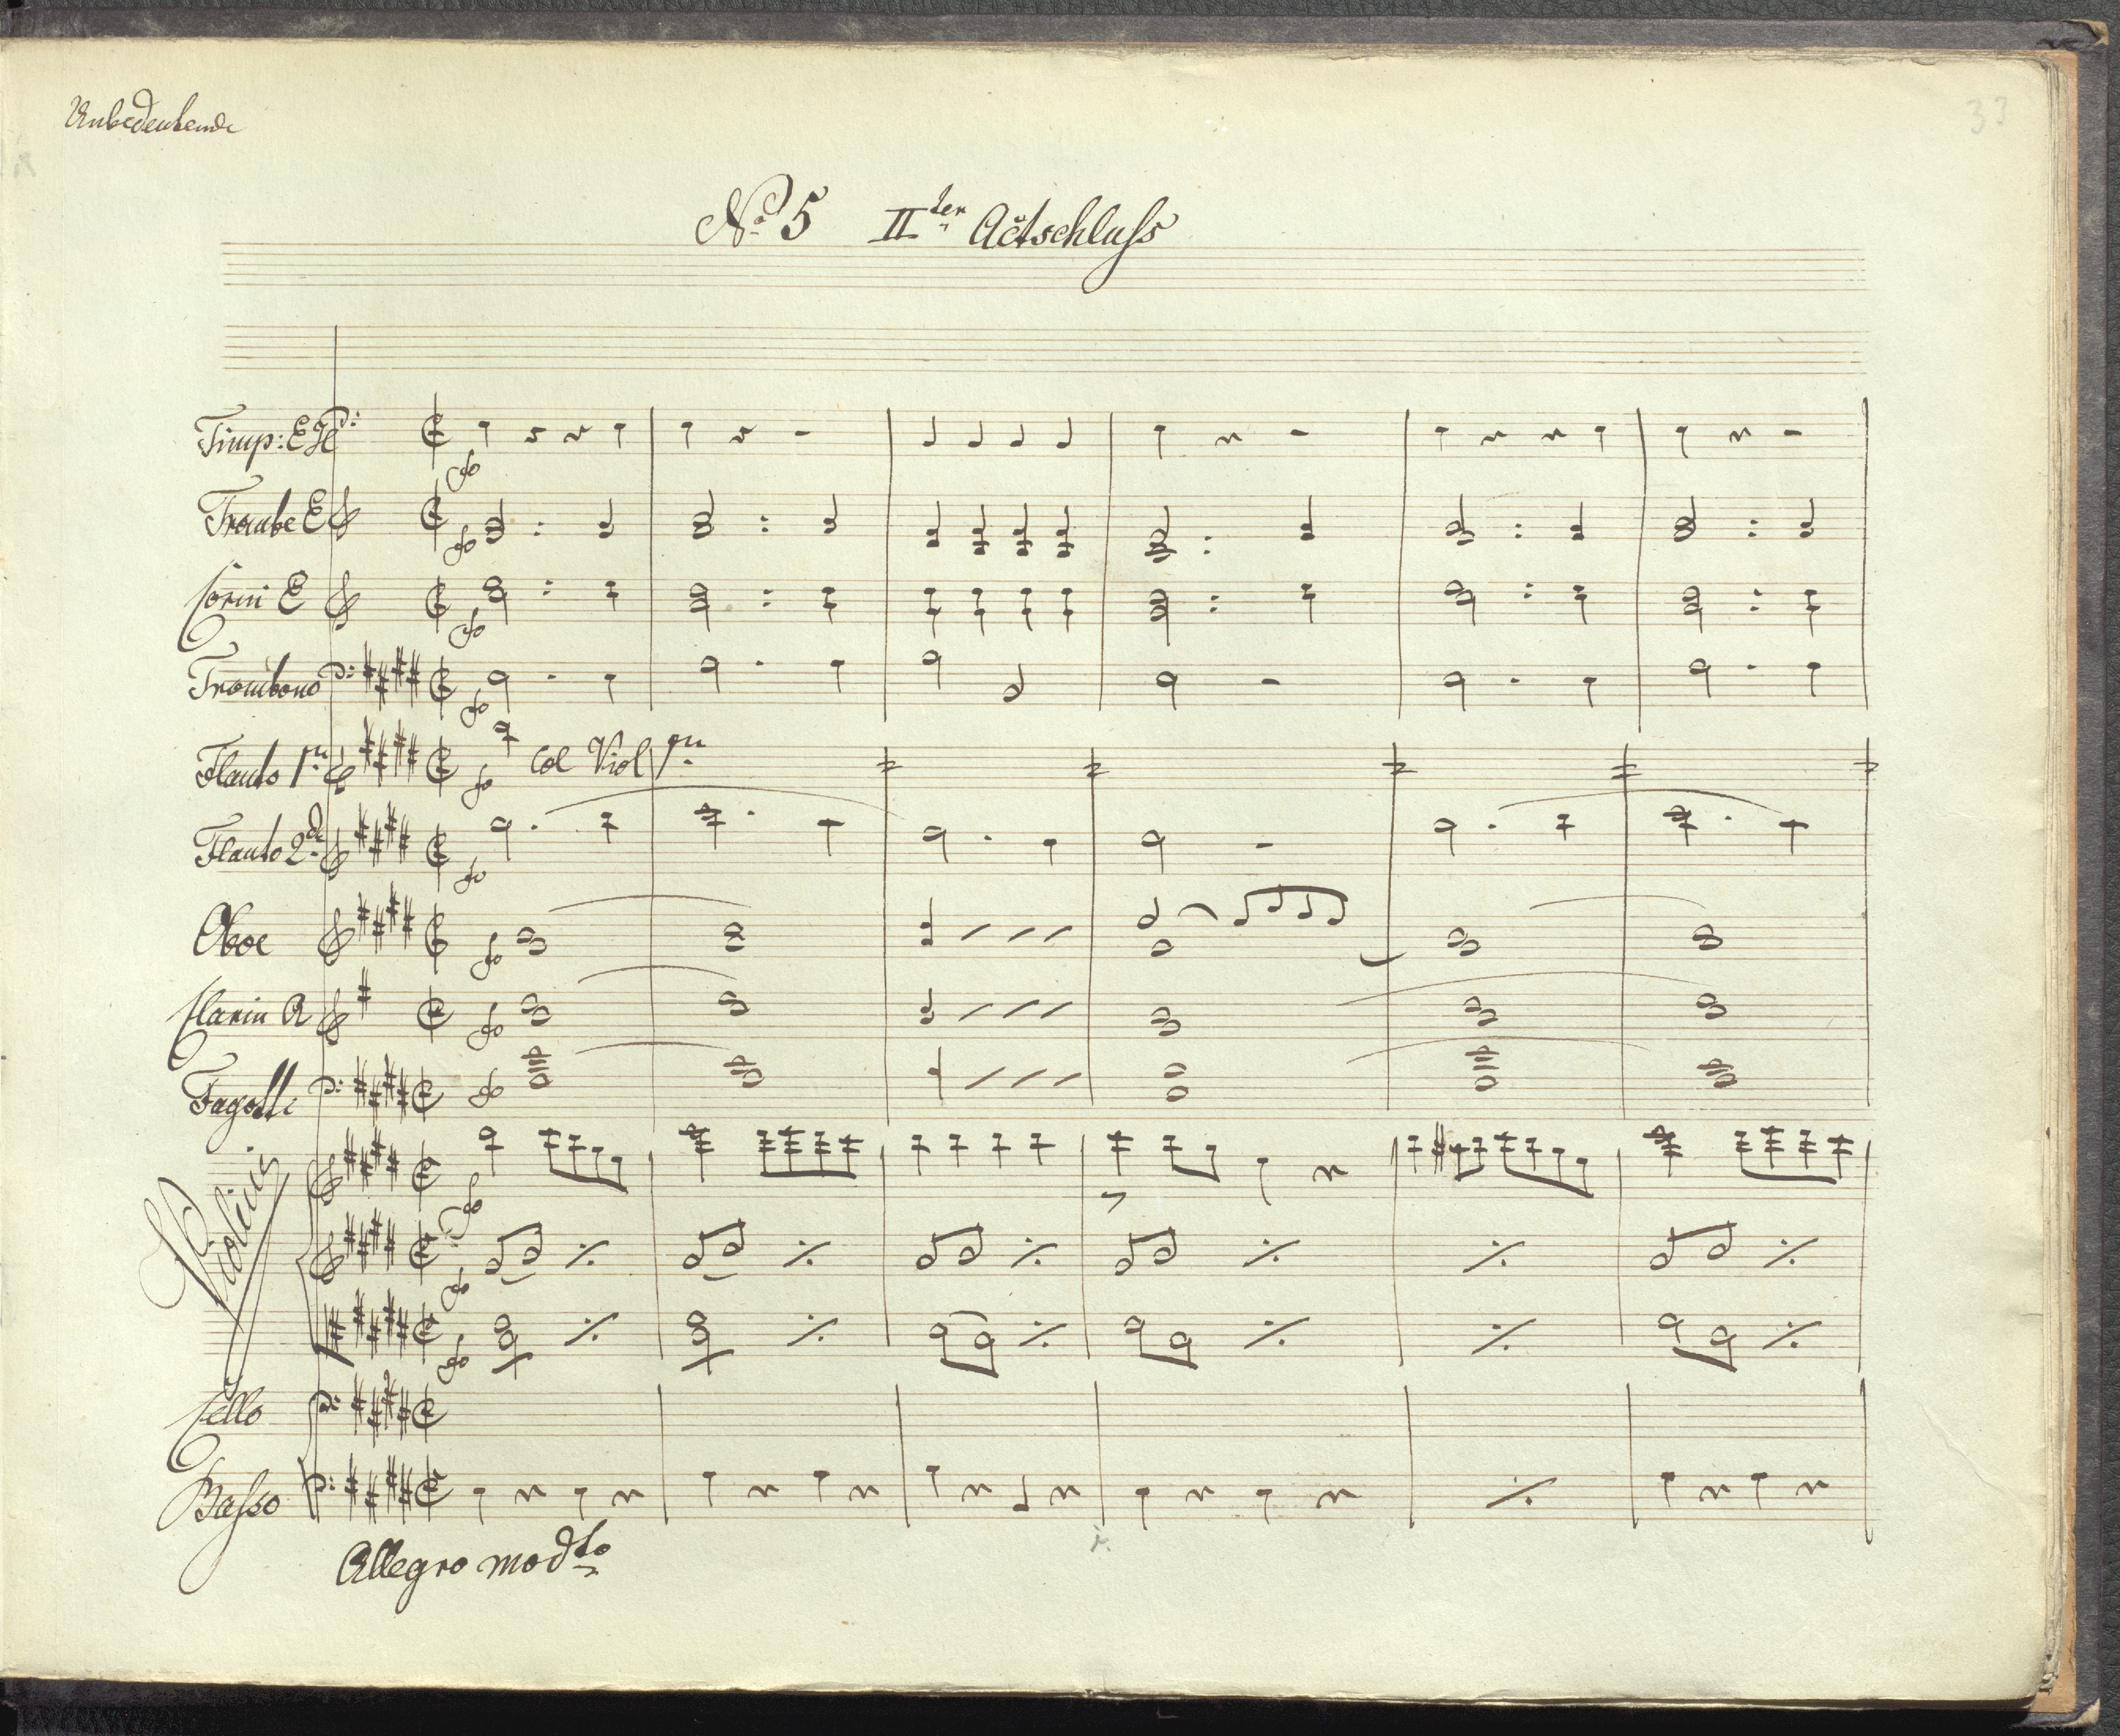 Unbedeutende
33
No 5 IIter Actschluſs
Timp: E H
Trombe E
Corni E
Trombono
Flauto 1mo Col Viol 1mo
Flauto 2do
Oboe
Clarin A
Fagotti
Violini
Cello
Baſso
Allegro modto